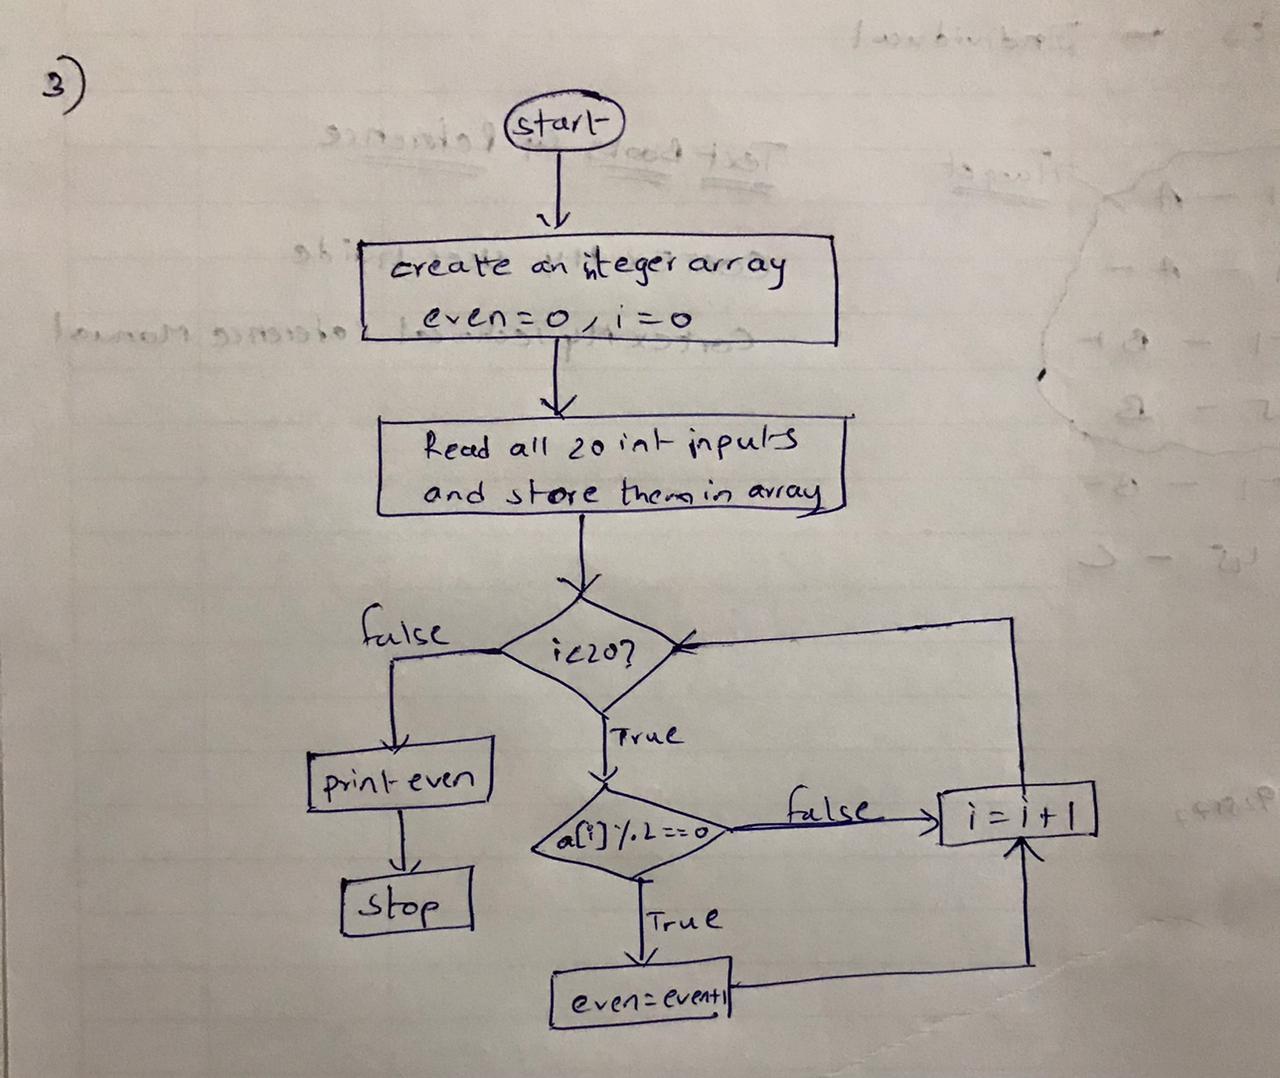 3)
start
create an integer array
even=0, i=0
Read all 20 int inputs
and store them in array
false
i<20?
True
print even
a[i]%2==0
false
i=i+1
stop
True
even=even+1